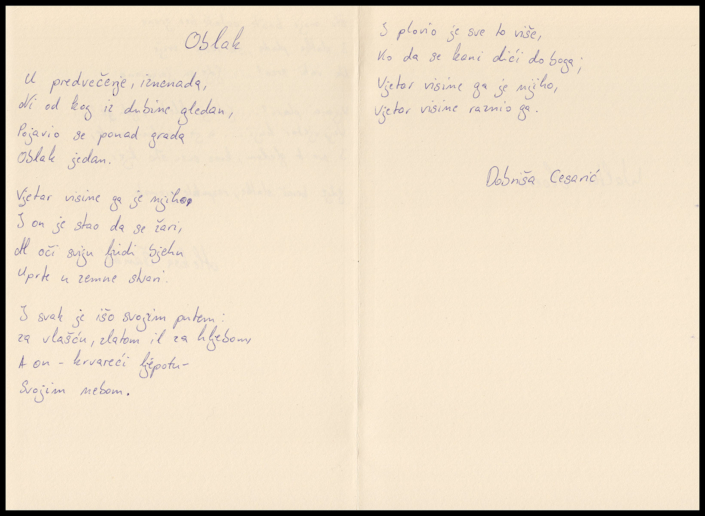 Oblak
U predvečerje, iznenada,
Ni od kog iz dubine gledan,
Pojavio se ponad grada
Oblak jedan.
Vjetar visine ga je njiho,
I on je stao da se žari,
Al oči sviju ljudi bjehu
Uprte u zemne stvari.
I svak je išo svojim putem:
za vlašću, zlatom il za hljebom,
A on - krvareći ljepotu -
Svojim nebom.
I plovio je sve to više,
Ko da se kani dići do boga;
Vjetar visine ga je njiho,
Vjetar visine raznio ga.
Dobriša Cesarić